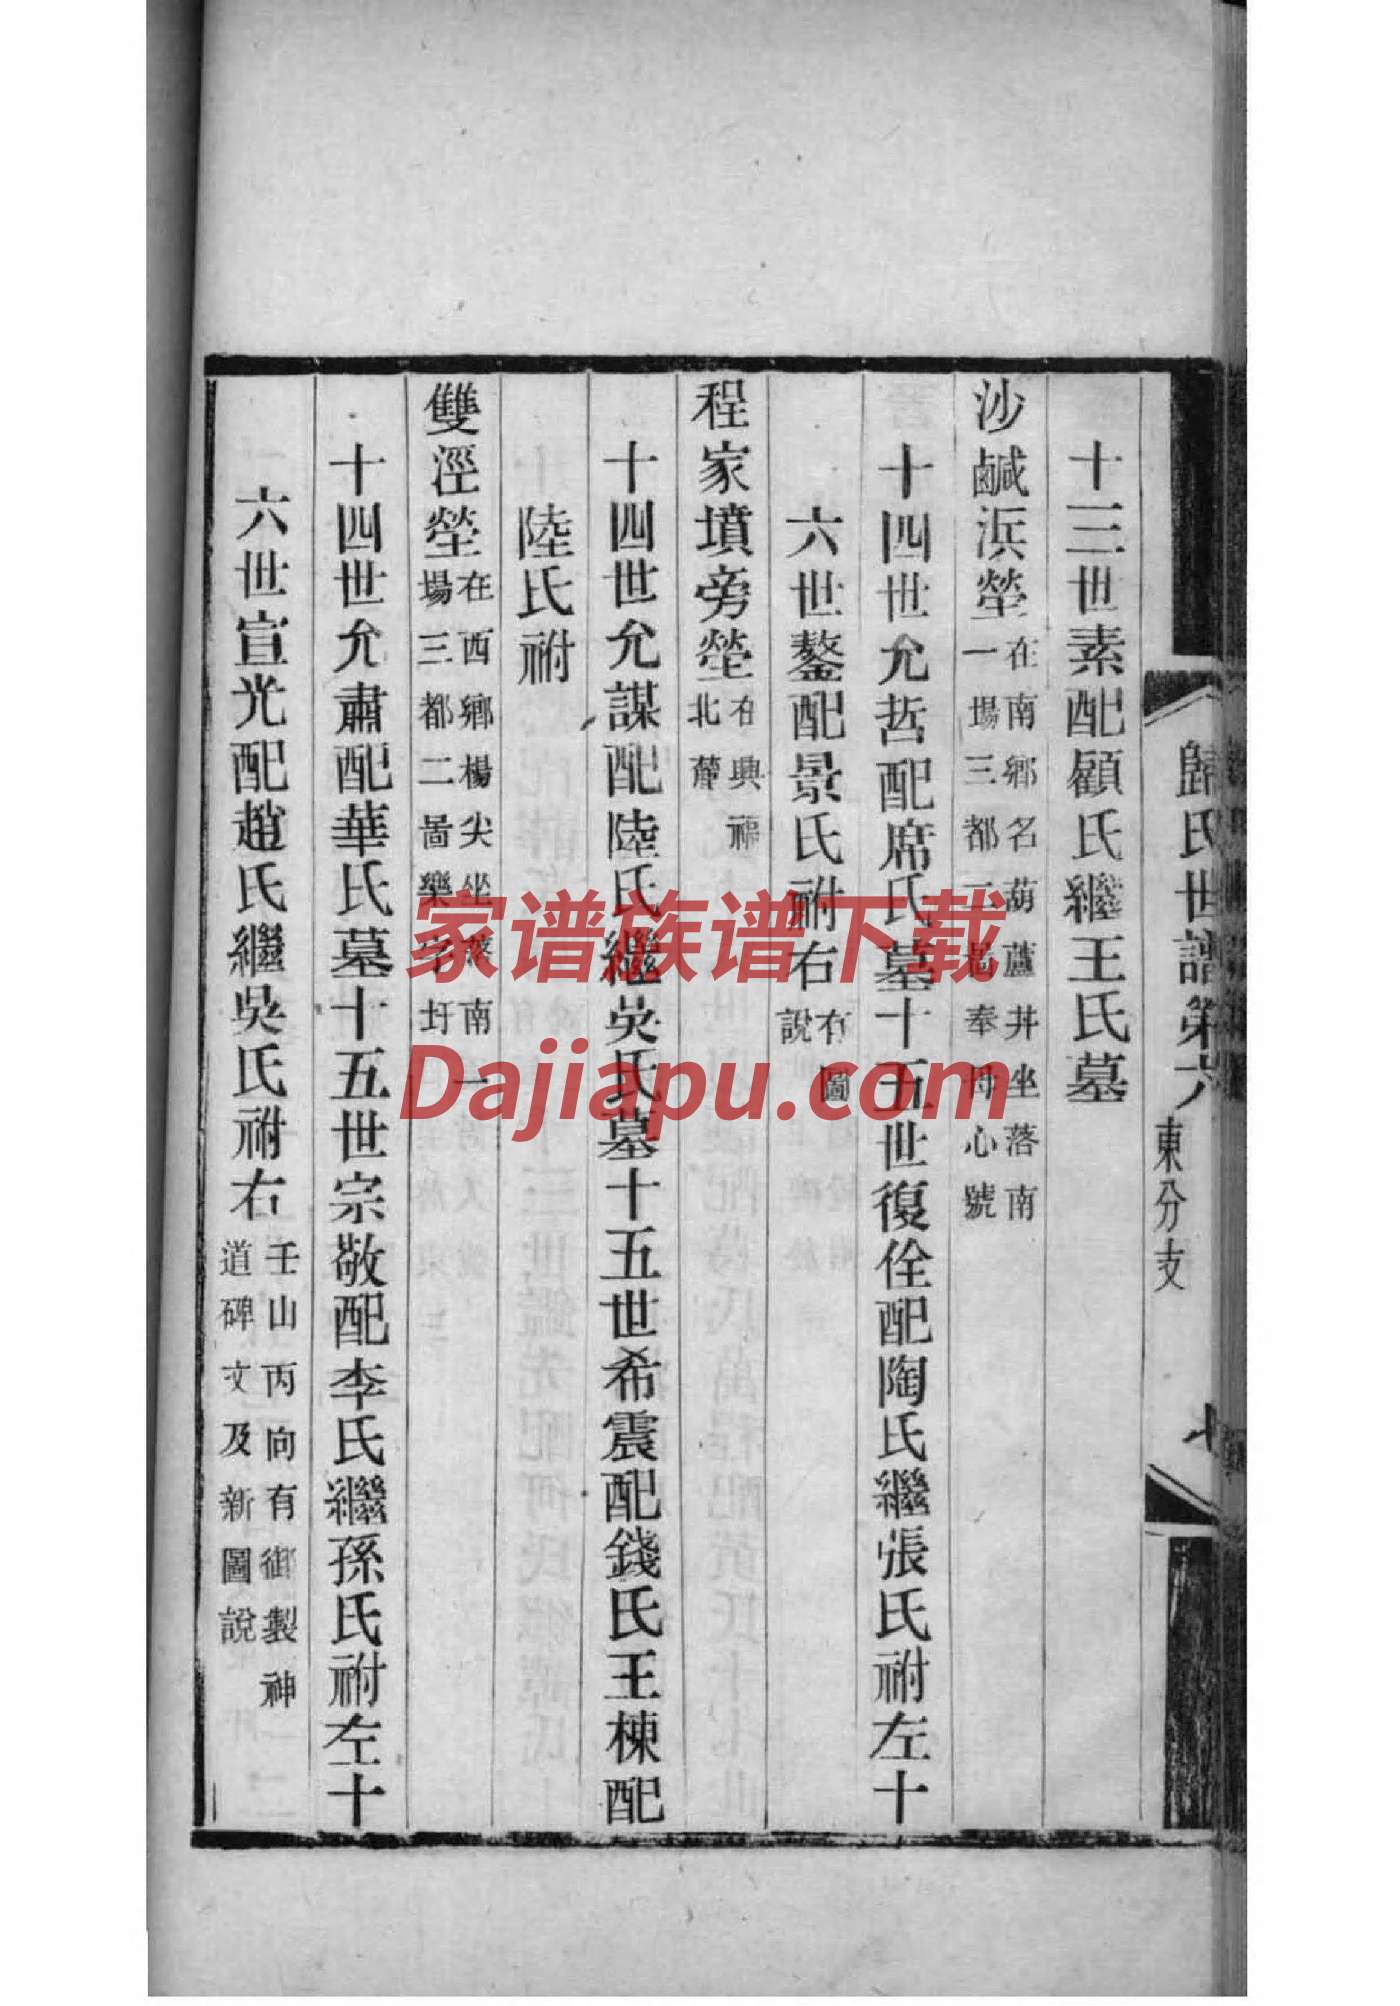 歸氏世譜第六 東分支 七
十三世素配顧氏繼王氏墓
沙鹹浜塋 在南鄉名葫蘆井坐落南一場三都二啚奉 心號
十四世允哲配席氏墓十五世復佺配陶氏繼張氏祔左十
六世鏊配景氏祔右 有圖說
程家墳旁塋 在興福北麓
十四世允謀配陸氏繼吳氏墓十五世希震配錢氏王棟配
陸氏祔
雙涇塋 在西鄉楊尖坐落南一場三都二啚樂字圩
十四世允肅配華氏墓十五世宗敬配李氏繼孫氏祔左十
六世宣光配趙氏繼吳氏祔右 壬山丙向有御製神道碑文及新圖說
家谱族谱下载
Dajiapu.com